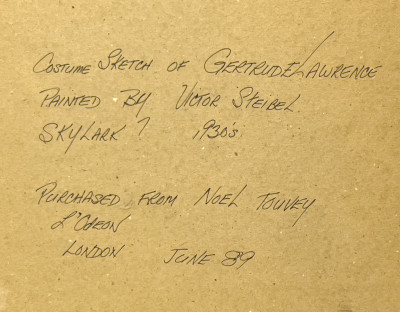 COSTUME SKETCH OF GERTRUDE LAWRENCE
PAINTED BY VICTOR STEIBEL.
SKYLARK? 1930's
PURCHASED FROM NOEL TOUVEY
L'ODEON
LONDON JUNE 89